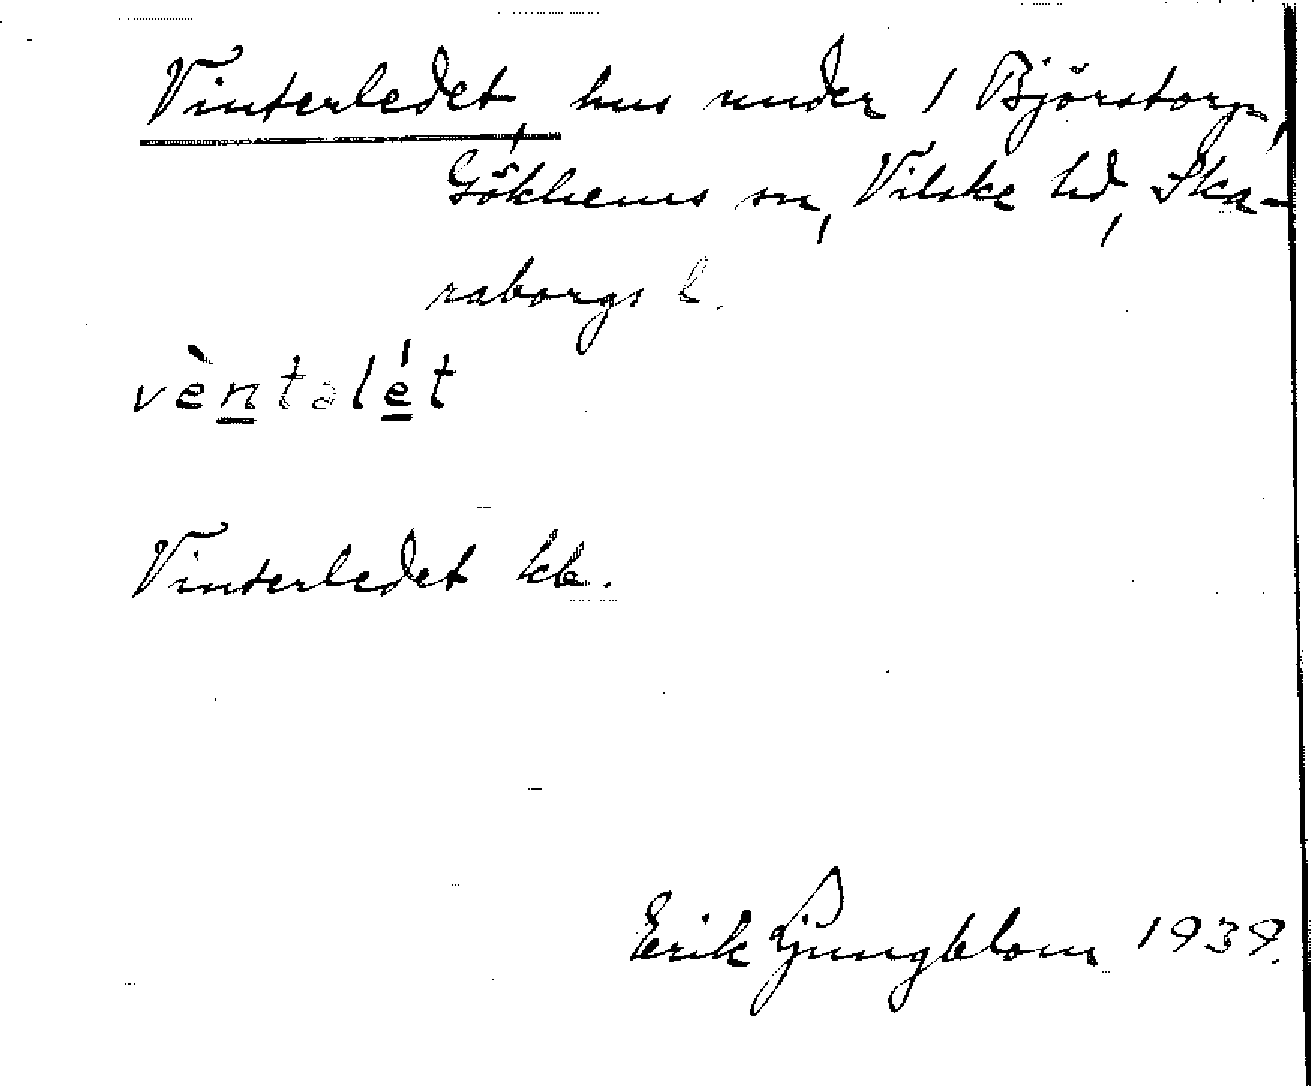 Vinterledet, hus under 1 Björstorp,
Gökhems sn, Vilske hd, Ska-
raborgs l.
vèntalét
Vinterledet kb.
Erik Ljungblom 1939.